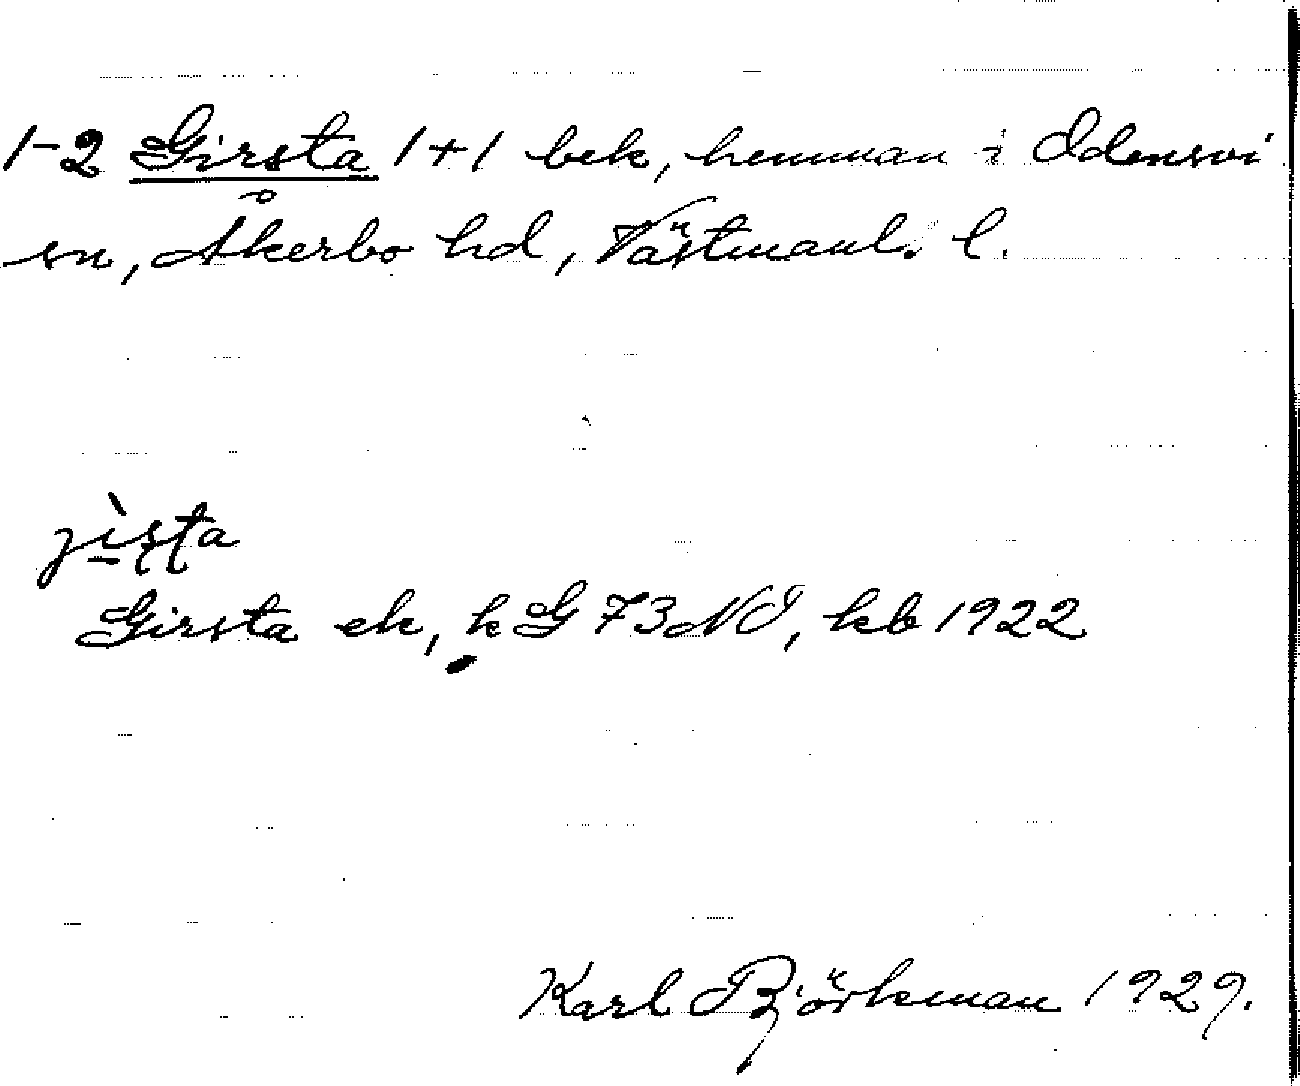 1-2 Girsta 1+1 bek, hemman i Odensvi
sn, Åkerbo hd, Västmanl. l.
jìsta
Girsta ek, k G 73 NO, kb 1922
Karl Björkman 1929.